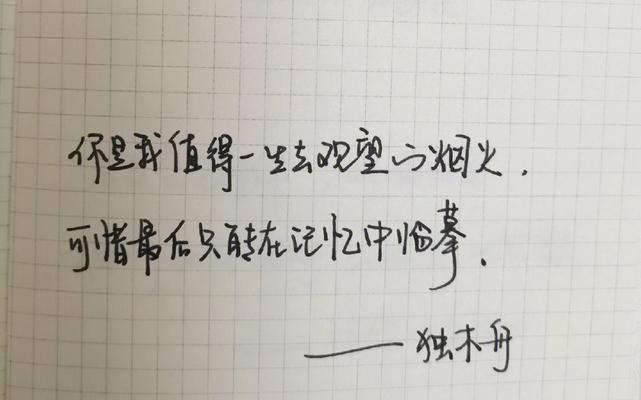 你是我值得一生去观望的烟火.
可惜最后只能在记忆中临摹.
——独木舟